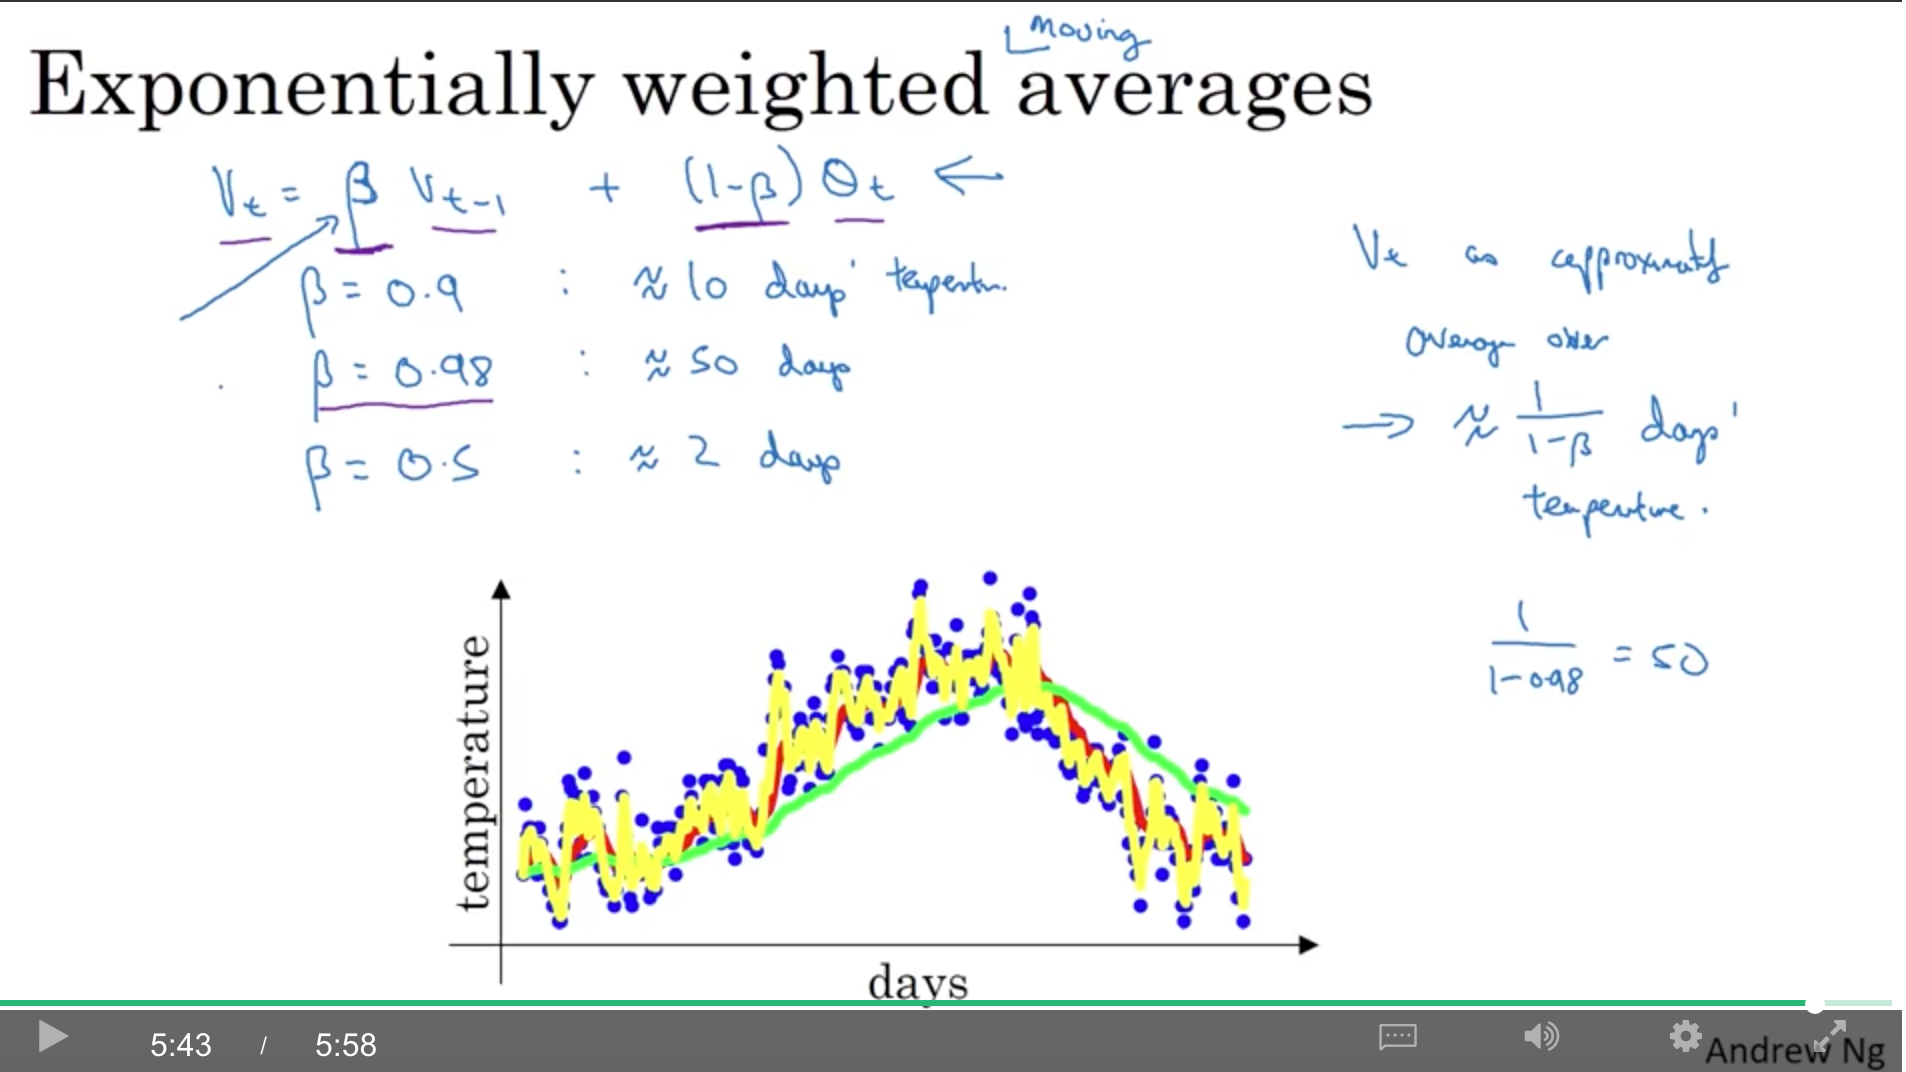 moving
Exponentially weighted averages
Vt = β Vt-1 + (1-β) θt ←
β = 0.9 : ≈ 10 days' temperatur.
β = 0.98 : ≈ 50 days
β = 0.5 : ≈ 2 days
Vt as approximately
average over
→ ≈ 1/(1-β) days'
temperature.
1/(1-0.98) = 50
temperature
days
5:43 / 5:58
Andrew Ng